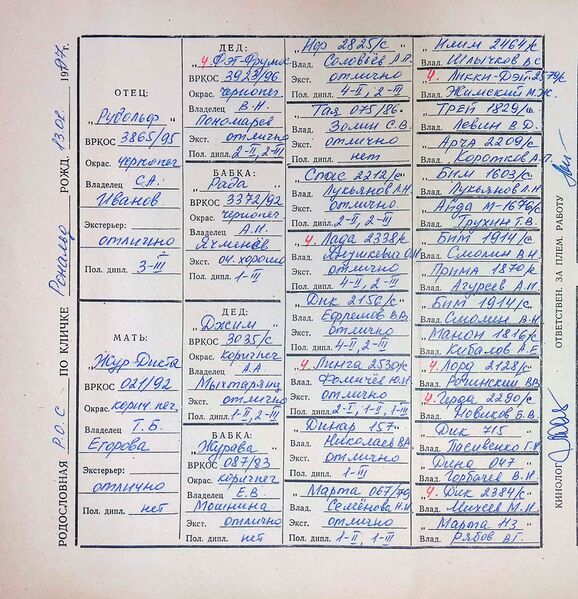 РОДОСЛОВНАЯ Р.О.С. ПО КЛИЧКЕ Рональд РОЖД. 1997 г.
ОТЕЦ:
„Рудольф"
ВРКОС 3865/95
Окрас. чернопег
Владелец С.А.
Иванов
Экстерьер:
отлично
Пол. дипл. 3-III
МАТЬ:
Жур-Дикта
ВРКОС 021/92
Окрас. корич пег.
Владелец Т.Б.
Егорова
Экстерьер:
отлично
Пол. дипл. нет
ДЕД:
ВРКОС 3923/96
Окрас. чернопег
Владелец В.Н.
Пономарев
Экст. отлично
Пол. дипл. 2-II, 2-III
БАБКА:
„Рада"
ВРКОС 3372/92
Окрас. чернопег
Владелец А.Н.
Ячменёв
Экст. оч. хорошо
Пол. дипл. 1-III
ДЕД:
„Джим"
ВРКОС 3035/с
Окрас. коричпег
Владелец А.А.
Мыхтарянц
Экст. отлично
Пол. дипл. 1-II, 2-III
БАБКА:
„Журава"
ВРКОС 087/83
Окрас. коричпег
Владелец Е.В.
Мошнина
Экст. отлично
Пол. дипл. нет
2825/с
Влад. Соловьёв А.П.
Экст. отлично
Пол. дипл. 4-II, 2-III
„Тая 075/86"
Влад. Золин С.В.
Экст. отлично
Пол. дипл. нет
„Спас 2212/с"
Влад. Лукьянов Л.Н.
Экст. отлично
Пол. дипл. 2-II, 2-III
„Ч. Лада 2338/с"
Влад. Янушкевич О.И.
Экст. отлично
Пол. дипл. 4-II, 2-III
„Дик 2156/с"
Влад. Ефремов В.В.
Экст. отлично
Пол. дипл. 4-II, 2-III
„Ч. Линга 2530/с"
Влад. Фомичёв Ю.Н.
Экст. отлично
Пол. дипл. 2-I, 1-II, 1-III
„Динар 157"
Влад. Николаев В.А.
Экст. отлично
Пол. дипл. 1-III
„Марта 067/79"
Влад. Семёнова Н.И.
Экст. отлично
Пол. дипл. 1-II, 1-III
„Илим 2464/с"
Влад. Шлычков В.С.
„Ч. Микки-Дэт 2579/с"
Влад. Жимский М.Ж.
„Трей 1829/с"
Влад. Левин В.Д.
„Арча 2209/с"
Влад. Коротков А.Г.
„Бим 1603/с"
Влад. Лукьянов Л.Н.
„Айда М-1679/с"
Влад. Трухин Т.В.
„Бим 1914/с"
Влад. Смолин В.Н.
„Прима 1870/с"
Влад. Агуреев А.Н.
„Бим 1914/с"
Влад. Смолин В.Н.
„Манон 1816/с"
Влад. Кибалов А.Е.
„Ч. Лорд 2128/с"
Влад. Робинский В.В.
„Ч. Герда 2290/с"
Влад. Новиков Б.В.
„Дик 715"
Влад. Пасивенко Г.И.
„Дина 047"
Влад. Горбачев В.Н.
„Ч. Дик 2384/с"
Влад. Михеев М.Н.
„Марта 113"
Влад. Рябов В.Г.
КИНОЛОГ
ОТВЕТСТВЕН. ЗА ПЛЕМ. РАБОТУ